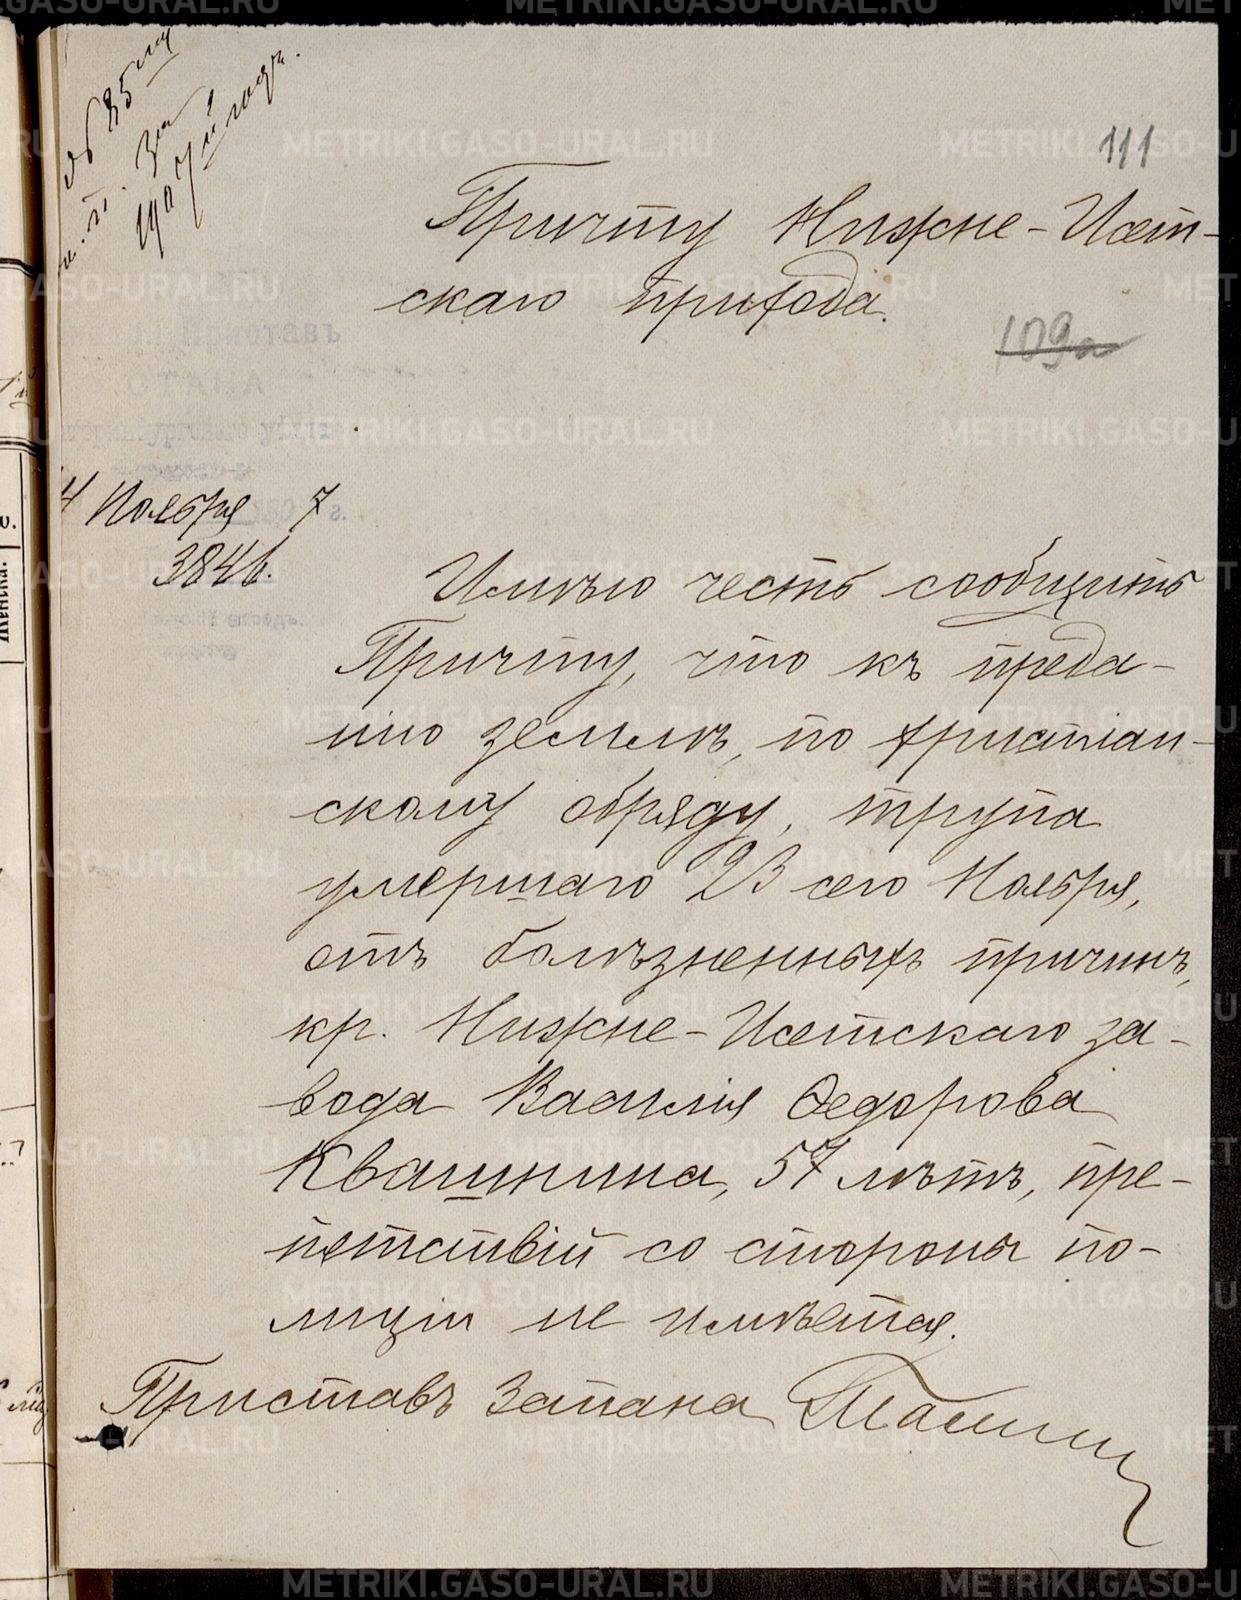 об 85му
м. п. За
1907й годъ.
111
Причту Нижне-Исет-
скаго прихода.
109а
Приставъ
СТАНА
4 Ноября 7 г.
3846.
Имѣю честь сообщить
Причту, что къ преда-
нію землѣ, по христіан-
скому обряду, трупа
умершаго 23 сего Ноября,
отъ болѣзненныхъ причинъ,
кр. Нижне-Исетскаго за-
вода Василія Ѳедорова
Квашнина, 57 лѣтъ, пре-
пятствій со стороны по-
лиціи не имѣется.
Приставъ 3 стана
METRIKI.GASO-URAL.RU